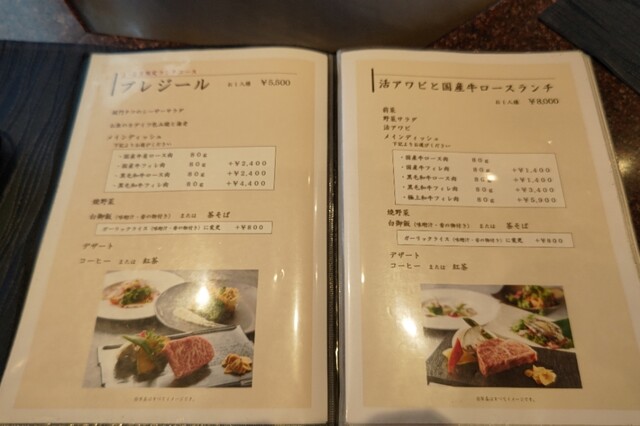 プレジール お1人様 ￥5,500
メインディッシュ
下記よりお選びください
・国産牛ロース肉 80g
・国産牛フィレ肉 80g +￥2,400
・黒毛和牛ロース肉 80g +￥2,400
・黒毛和牛フィレ肉 80g +￥4,400
焼野菜
白御飯（味噌汁・香の物付き） または 茶そば
ガーリックライス（味噌汁・香の物付き）に変更 +￥800
デザート
コーヒー または 紅茶
活アワビと国産牛ロースランチ
お1人様 ￥9,000
前菜
野菜サラダ
活アワビ
メインディッシュ
下記よりお選びください
・国産牛ロース肉 80g
・国産牛フィレ肉 80g +￥1,400
・黒毛和牛ロース肉 80g +￥1,400
・黒毛和牛フィレ肉 80g +￥3,400
・極上和牛フィレ肉 80g +￥5,900
焼野菜
白御飯（味噌汁・香の物付き） または 茶そば
ガーリックライス（味噌汁・香の物付き）に変更 +￥800
デザート
コーヒー または 紅茶